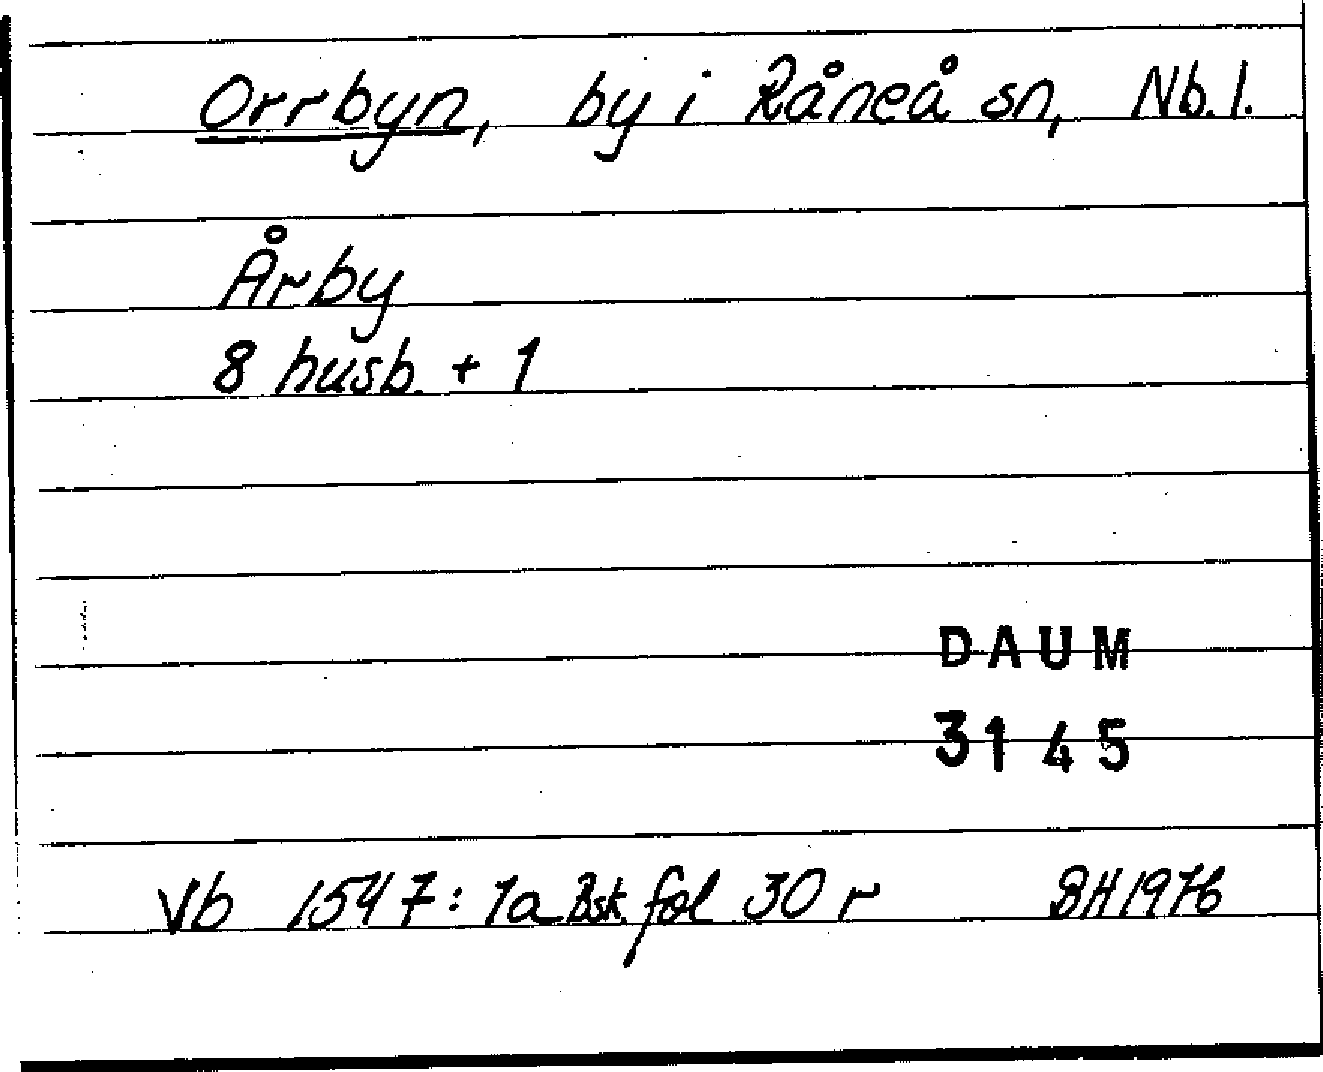 Orrbyn, by i Råneå sn, Nb. l.
Årby
8 husb. + 1
DAUM
3145
Vb 1547: 1a Bsk. fol 30 r BH1976